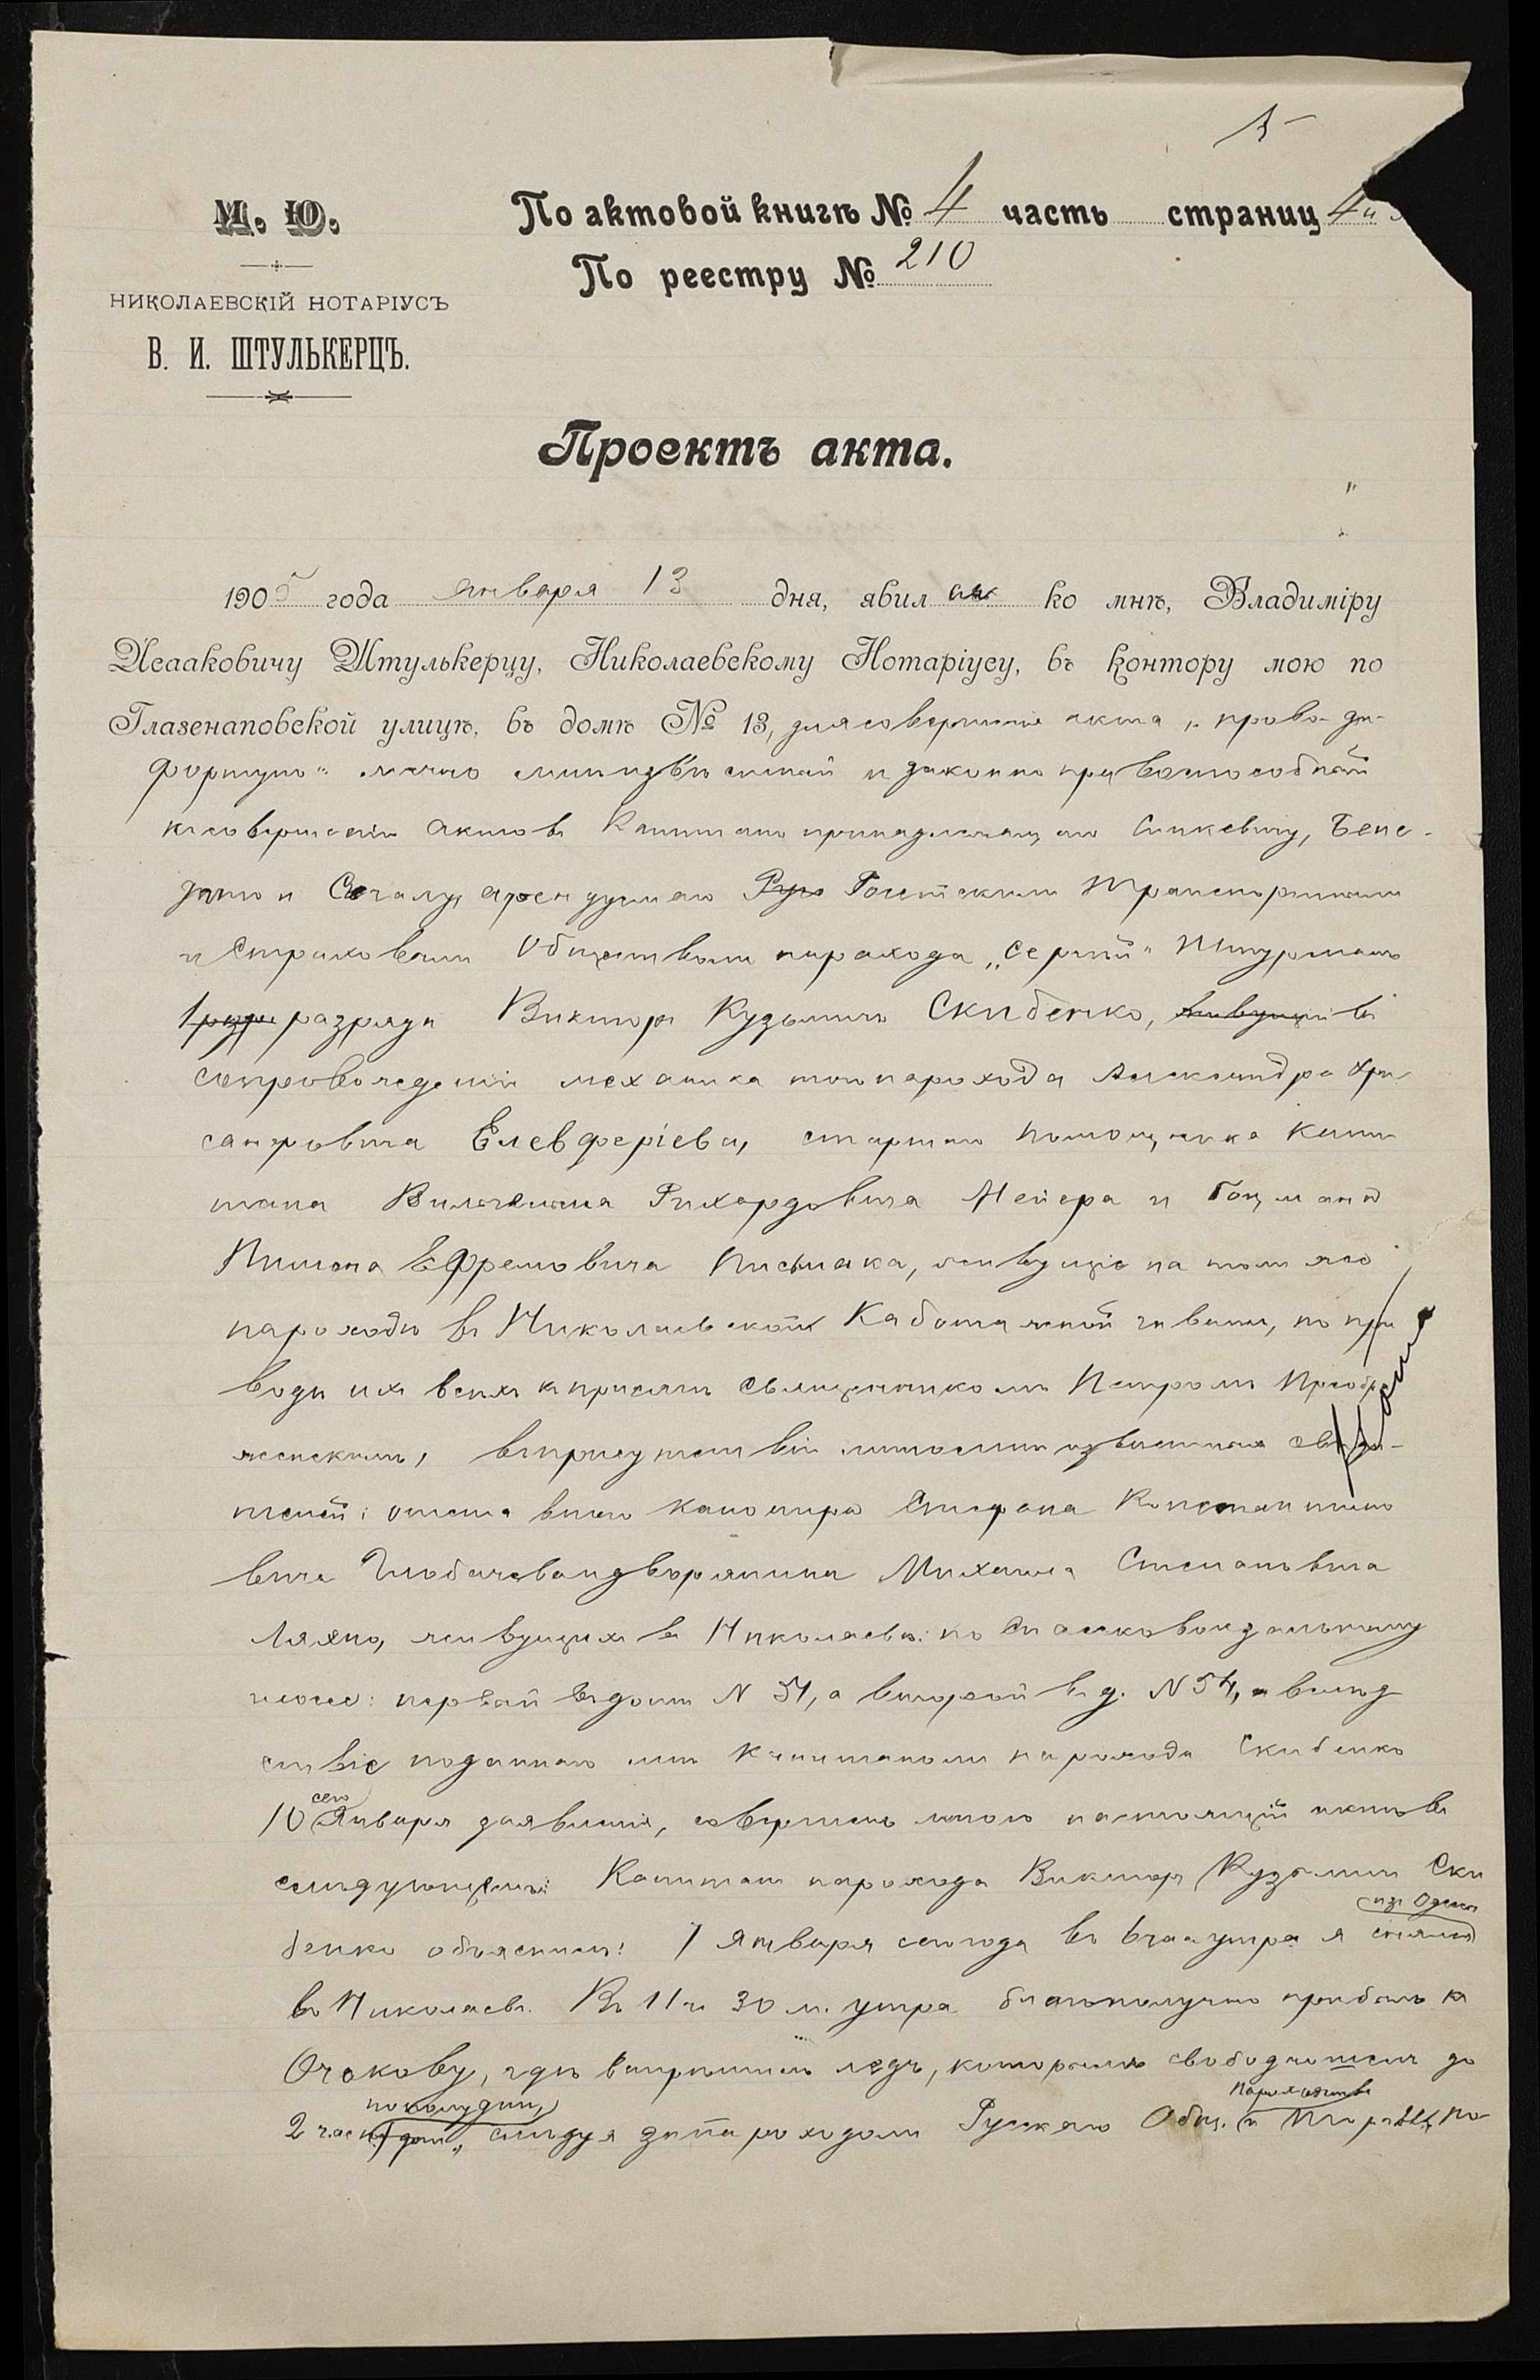 5
М. Ю.
НИКОЛАЕВСКІЙ НОТАРІУСЪ
В. И. ШТУЛЬКЕРЦЪ.
По актовой книгѣ № 4 часть страниц 4 и
По реестру № 210
Проектъ акта.
1905 года января 13 дня, явился ко мнѣ, Владиміру
Исааковичу Штулькерцу, Николаевскому Нотаріусу, въ контору мою по
Глазенаповской улицѣ, въ домѣ № 13, для совершенія акта
лично мнѣ извѣстный и законно правоспособный
къ совершенію актовъ Капитанъ принадлежащаго Синкевичу,
и арендуемаго Россійскимъ Транспортнымъ
и Страховымъ Обществомъ парохода „Сергій" Штурманъ
1 разряда Викторъ Кузьмичъ Скибенко, въ
сопровожденіи механика того парохода Александра Хри
санфовича Елевферіева, старшаго помощника Капи
тана Вильгельма Рихардовича Мейера и боцмана
Пимона Ефремовича Письмака, живущіе на томъ же
пароходѣ въ Николаевской Каботажной гавани, по при
водѣ ихъ всѣхъ къ присягѣ Священникомъ Петромъ Преобра
женскимъ, въ присутствіи лично мнѣ извѣстныхъ свидѣ-
телей: отставнаго Стефана Константино
вича и дворянина Михаила Степановича
Ляхно, живущихъ въ Николаевѣ: по
шоссе: первый въ домѣ N 51, а второй въ д. N 54, вслѣд
ствіе поданнаго мнѣ Капитаномъ парохода Скибенко
10 сего Января заявленія, совершенъ мною настоящій актъ въ
слѣдующемъ: Капитанъ парохода Викторъ Кузьмичъ Ски
бенко объяснилъ: 7 Января сего года въ 6 час утра я снялся изъ Одессы
въ Николаевъ. Въ 11 ч 30 м. утра благополучно прибылъ къ
Очакову, гдѣ встрѣтилъ ледъ, которымъ свободно шелъ до
2 час пополудни, слѣдуя за пароходомъ Русскаго Общ. Пароходства и Торговли, по